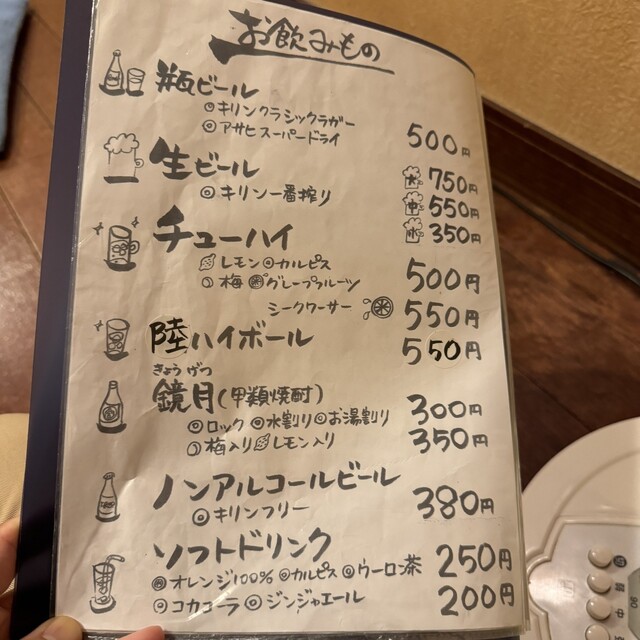 お飲みもの
瓶ビール
◎キリンクラシックラガー
◎アサヒスーパードライ 500円
生ビール 大 750円
◎キリン一番搾り 中 550円
小 350円
チューハイ
レモン ◎カルピス
梅 グレープフルーツ 500円
シークワーサー 550円
陸ハイボール 550円
きょうげつ
鏡月(甲類焼酎)
◎ロック ◎水割り ◎お湯割り 300円
梅入り レモン入り 350円
ノンアルコールビール
◎キリンフリー 380円
ソフトドリンク
◎オレンジ100% ◎カルピス ◎ウーロン茶 250円
◎コカコーラ ◎ジンジャエール 200円